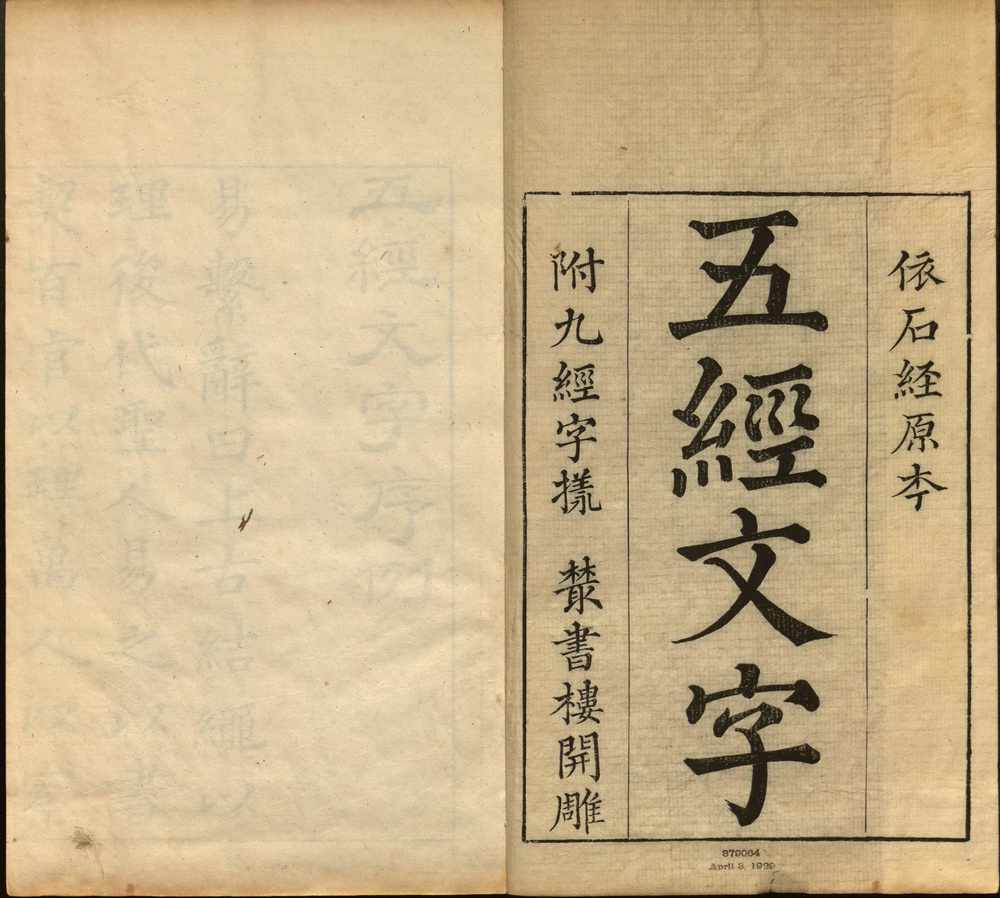 依石経原夲
五經文字
附九經字㨾　藂書樓開雕
379064
April 3, 1929
五經文字序例
易繫辭曰上古結繩以
理後代聖人易之以書
契百官以理萬人以